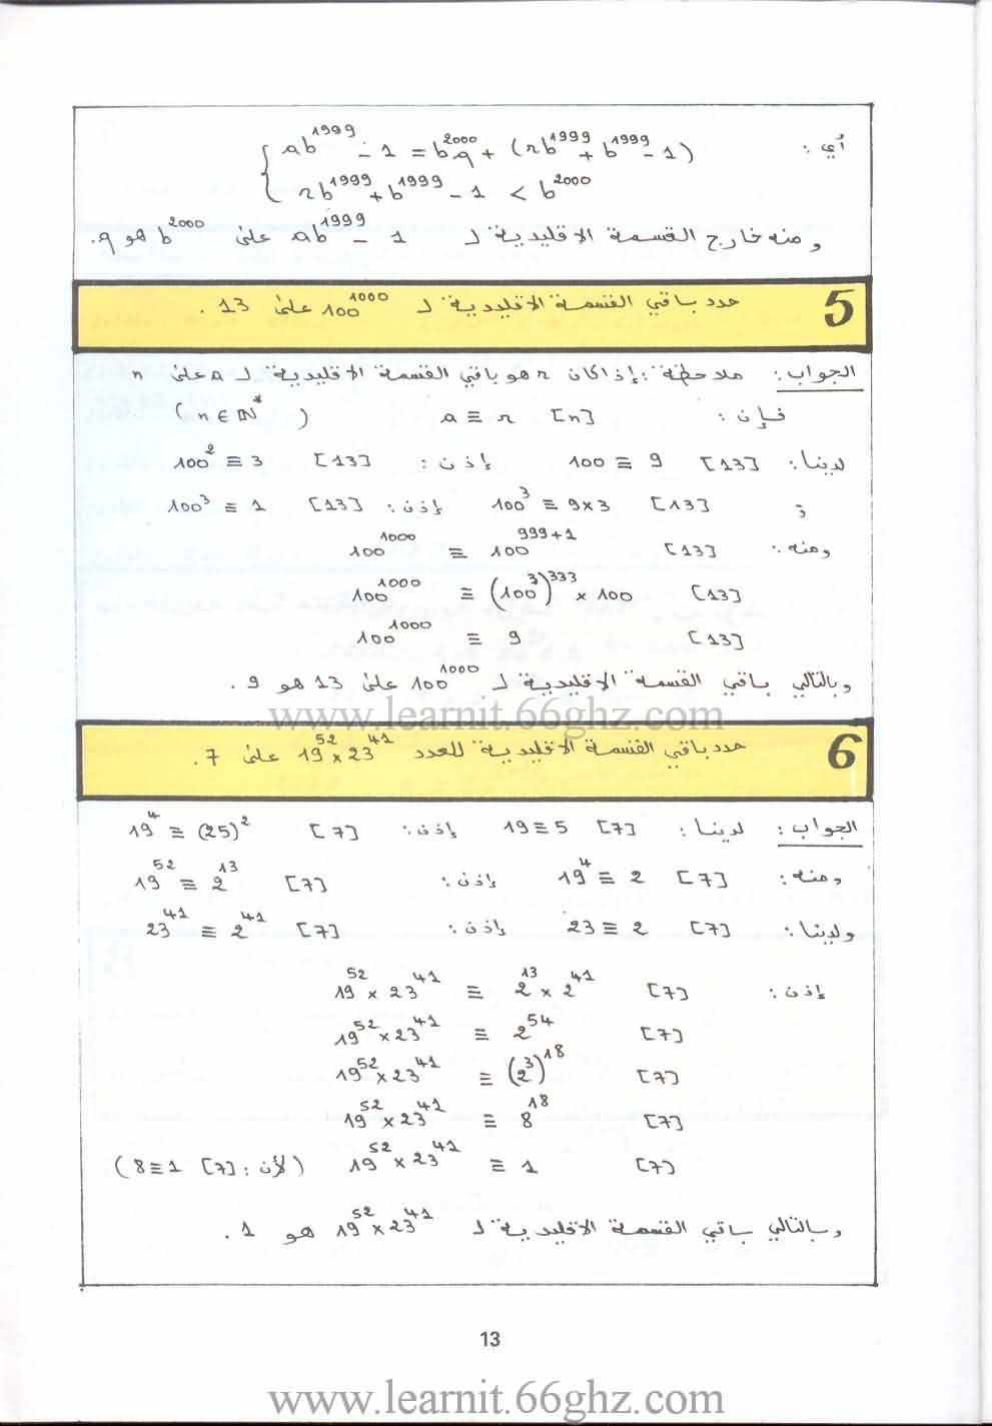 أي : { ab^1999 - 1 = b^2000 q + (rb^1999 + b^1999 - 1)
rb^1999 + b^1999 - 1 < b^2000
و منه خارج القسمة الاقليدية لـ ab^1999 - 1 على b^2000 هو q.
5 حدد باقي القسمة الاقليدية لـ 100^1000 على 13 .
الجواب : ملاحظة : إذا كان r هو باقي القسمة الاقليدية لـ a على n
فإن : a ≡ r [n] (n ∈ ℕ* )
لدينا : 100 ≡ 9 [13] إذن : 100^2 ≡ 3 [13]
و 100^3 ≡ 9×3 [13] إذن : 100^3 ≡ 1 [13]
ومنه : 100^1000 ≡ 100^999+1 [13]
100^1000 ≡ (100^3)^333 × 100 [13]
100^1000 ≡ 9 [13]
وبالتالي باقي القسمة الاقليدية لـ 100^1000 على 13 هو 9 .
www.learnit.66ghz.com
6 حدد باقي القسمة الاقليدية للعدد 19^52 × 23^41 على 7 .
الجواب : لدينا : 19 ≡ 5 [7] إذن : 19^4 ≡ (25)^2 [7]
ومنه : 19^4 ≡ 2 [7] إذن : 19^52 ≡ 2^13 [7]
ولدينا : 23 ≡ 2 [7] إذن : 23^41 ≡ 2^41 [7]
إذن : 19^52 × 23^41 ≡ 2^13 × 2^41 [7]
19^52 × 23^41 ≡ 2^54 [7]
19^52 × 23^41 ≡ (2^3)^18 [7]
19^52 × 23^41 ≡ 8^18 [7]
19^52 × 23^41 ≡ 1 [7] (لأن : 8 ≡ 1 [7])
وبالتالي باقي القسمة الاقليدية لـ 19^52 × 23^41 هو 1 .
13
www.learnit.66ghz.com